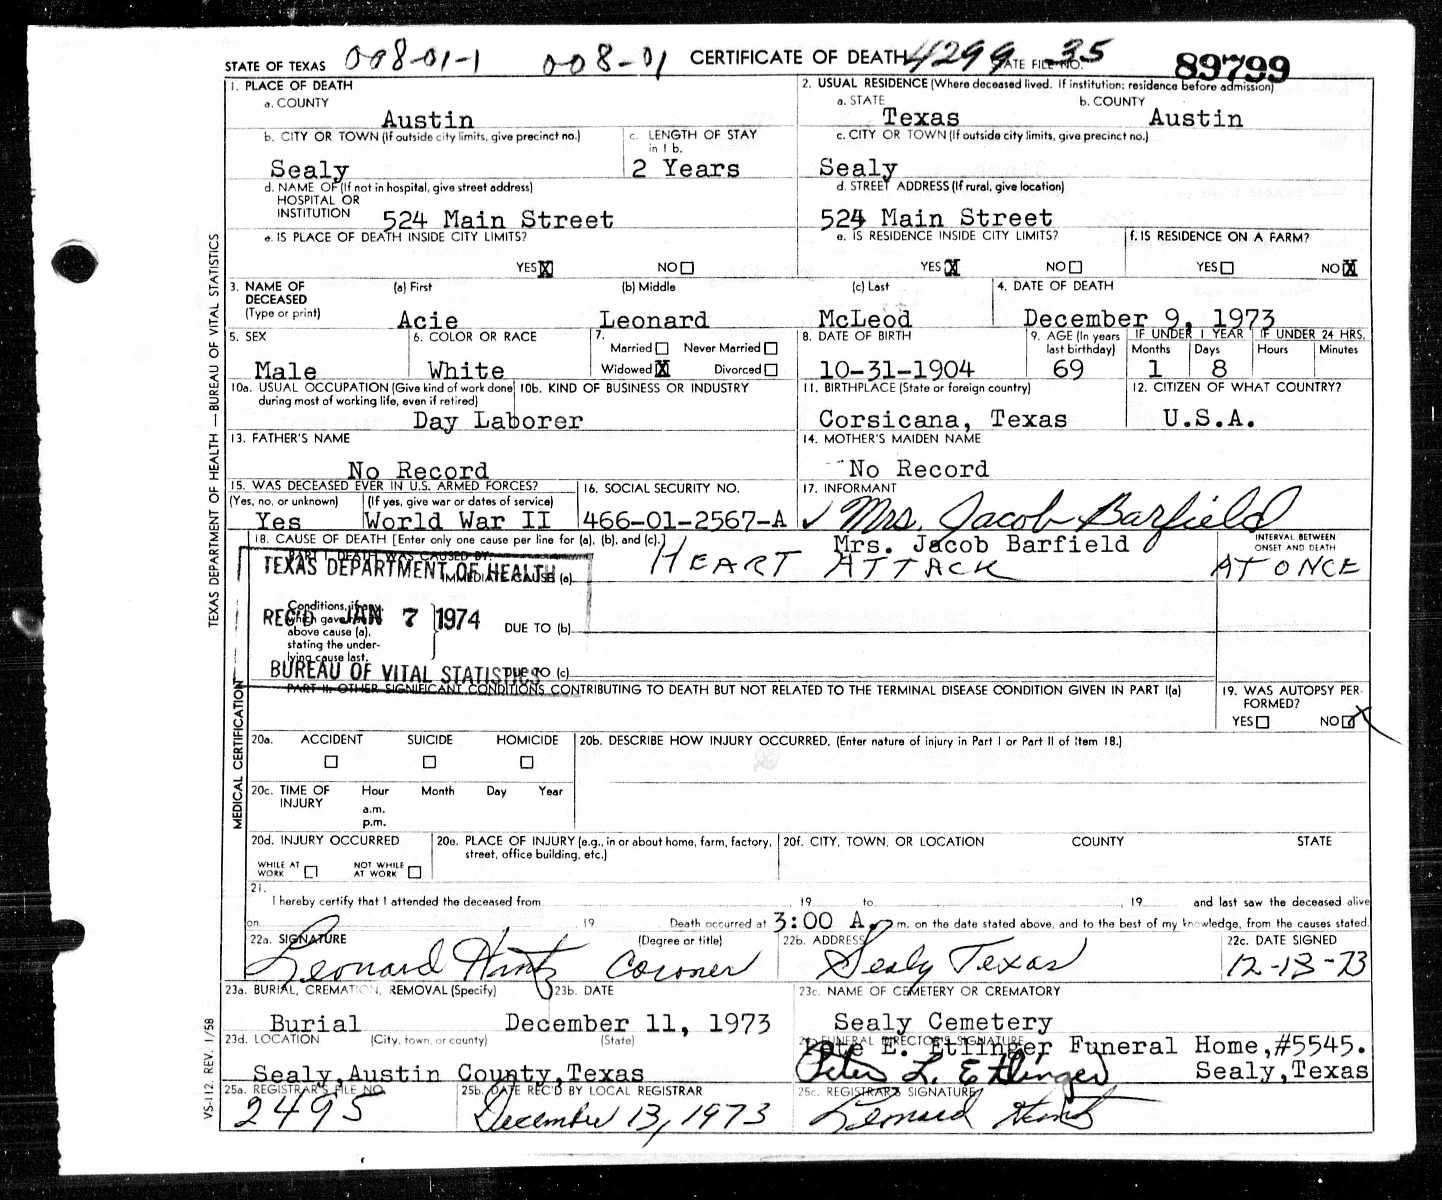 STATE OF TEXAS 008-01-1 008-01 CERTIFICATE OF DEATH 4299 STATE FILE NO. 35 89799
1. PLACE OF DEATH
a. COUNTY
Austin
2. USUAL RESIDENCE (Where deceased lived. If institution: residence before admission)
a. STATE b. COUNTY
Texas Austin
b. CITY OR TOWN (If outside city limits, give precinct no.)
Sealy
c. LENGTH OF STAY
in 1 b.
2 Years
c. CITY OR TOWN (If outside city limits, give precinct no.)
Sealy
d. NAME OF (If not in hospital, give street address)
HOSPITAL OR
INSTITUTION 524 Main Street
d. STREET ADDRESS (If rural, give location)
524 Main Street
e. IS PLACE OF DEATH INSIDE CITY LIMITS?
YES X NO
e. IS RESIDENCE INSIDE CITY LIMITS?
YES X NO
f. IS RESIDENCE ON A FARM?
YES NO X
3. NAME OF
DECEASED
(Type or print)
(a) First (b) Middle (c) Last
Acie Leonard McLeod
4. DATE OF DEATH
December 9, 1973
5. SEX
Male
6. COLOR OR RACE
White
7.
Married Never Married
Widowed X Divorced
8. DATE OF BIRTH
10-31-1904
9. AGE (In years
last birthday)
69
IF UNDER 1 YEAR
Months Days
1 8
IF UNDER 24 HRS.
Hours Minutes
10a. USUAL OCCUPATION (Give kind of work done
during most of working life, even if retired)
10b. KIND OF BUSINESS OR INDUSTRY
Day Laborer
11. BIRTHPLACE (State or foreign country)
Corsicana, Texas
12. CITIZEN OF WHAT COUNTRY?
U.S.A.
13. FATHER'S NAME
No Record
14. MOTHER'S MAIDEN NAME
No Record
15. WAS DECEASED EVER IN U.S. ARMED FORCES?
(Yes, no, or unknown) (If yes, give war or dates of service)
Yes World War II
16. SOCIAL SECURITY NO.
466-01-2567-A
17. INFORMANT
Mrs. Jacob Barfield
Mrs. Jacob Barfield
18. CAUSE OF DEATH [Enter only one cause per line for (a), (b), and (c).]
PART I. DEATH WAS CAUSED BY:
IMMEDIATE CAUSE (a) HEART ATTACK
INTERVAL BETWEEN
ONSET AND DEATH
AT ONCE
TEXAS DEPARTMENT OF HEALTH
REC'D JAN 7 1974
BUREAU OF VITAL STATISTICS
Conditions, if any,
which gave
above cause (a),
stating the under-
lying cause last.
DUE TO (b)
DUE TO (c)
PART II. OTHER SIGNIFICANT CONDITIONS CONTRIBUTING TO DEATH BUT NOT RELATED TO THE TERMINAL DISEASE CONDITION GIVEN IN PART I(a)
19. WAS AUTOPSY PER-
FORMED?
YES NO X
20a. ACCIDENT SUICIDE HOMICIDE
20b. DESCRIBE HOW INJURY OCCURRED. (Enter nature of injury in Part I or Part II of Item 18.)
20c. TIME OF
INJURY
Hour Month Day Year
a.m.
p.m.
20d. INJURY OCCURRED
WHILE AT
WORK
NOT WHILE
AT WORK
20e. PLACE OF INJURY (e.g., in or about home, farm, factory,
street, office building, etc.)
20f. CITY, TOWN, OR LOCATION COUNTY STATE
21.
I hereby certify that I attended the deceased from , 19 to , 19 and last saw the deceased alive
on 19 Death occurred at 3:00 A. m. on the date stated above, and to the best of my knowledge, from the causes stated.
22a. SIGNATURE (Degree or title)
Leonard Hintz Coroner
22b. ADDRESS
Sealy Texas
22c. DATE SIGNED
12-13-73
23a. BURIAL, CREMATION, REMOVAL (Specify)
Burial
23b. DATE
December 11, 1973
23c. NAME OF CEMETERY OR CREMATORY
Sealy Cemetery
23d. LOCATION (City, town, or county) (State)
Sealy, Austin County, Texas
24. FUNERAL DIRECTOR'S SIGNATURE
Pete E. Etlinger Funeral Home, #5545.
Peter L. Etlinger Sealy, Texas
25a. REGISTRAR'S FILE NO.
2495
25b. DATE REC'D BY LOCAL REGISTRAR
December 13, 1973
25c. REGISTRAR'S SIGNATURE
Leonard Hintz
TEXAS DEPARTMENT OF HEALTH — BUREAU OF VITAL STATISTICS
MEDICAL CERTIFICATION
VS-112 REV. 1/58